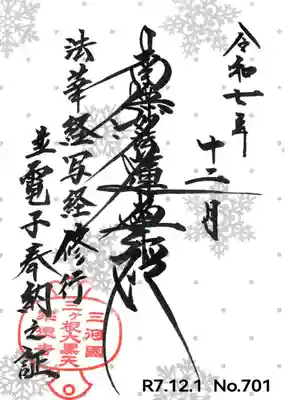 令和七年
十二月
南無妙法蓮華経
法華経写経修行
並電子奉納之証
三河國
三ヶ根大黒天
R7.12.1 No.701